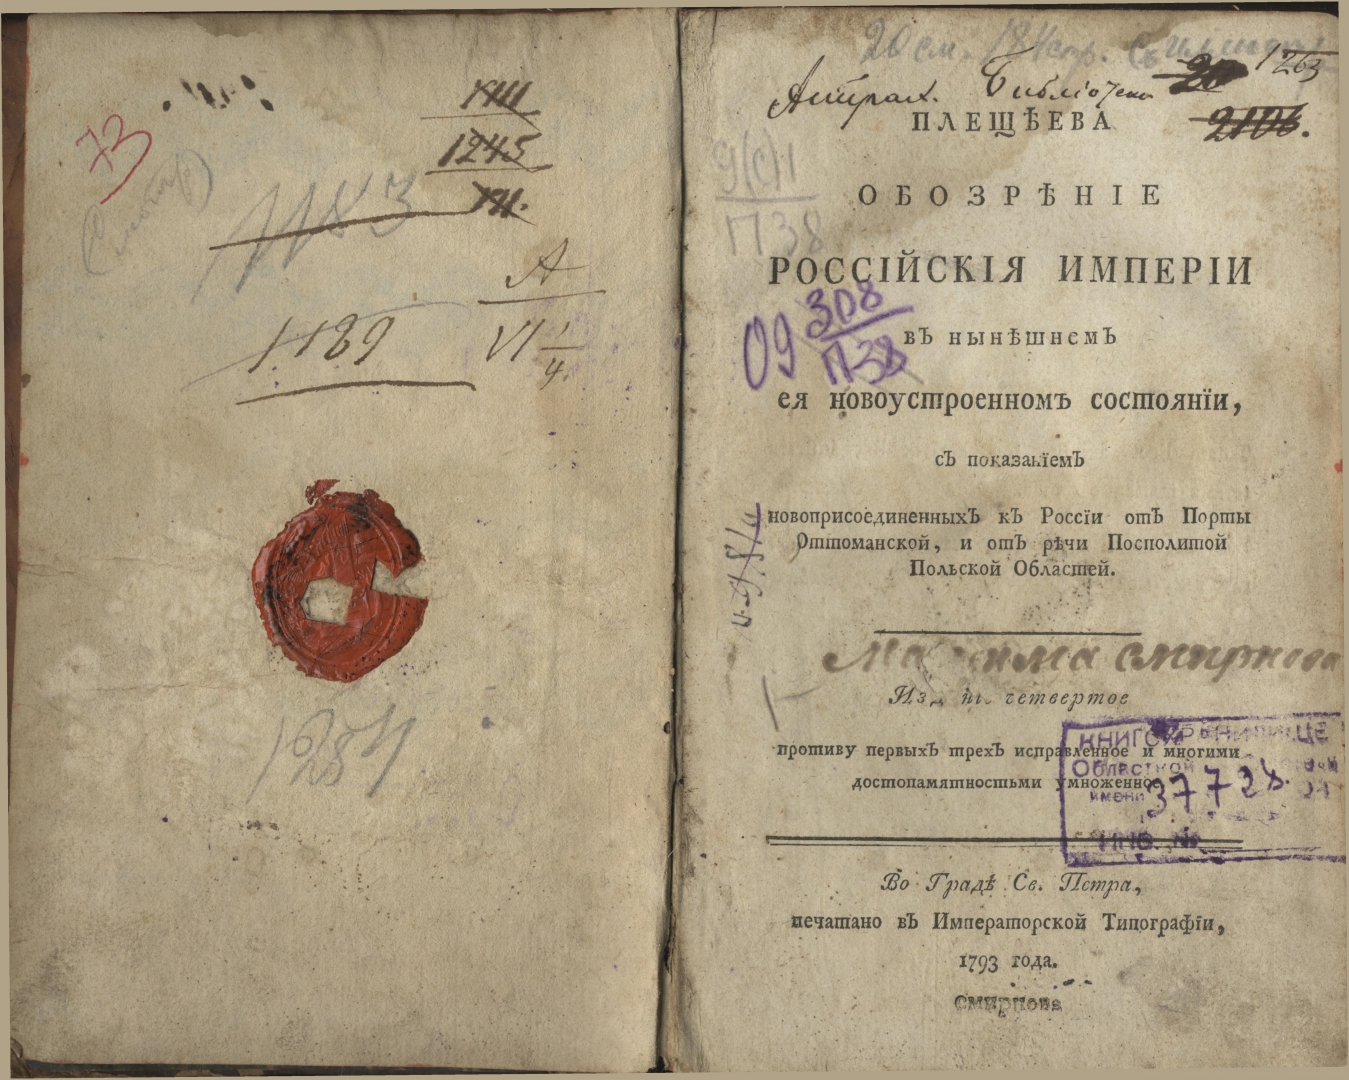 1111
1245
73
1183
111.
А
VI 1/4.
1189
1284
20 см. 184 стр.
1263
Астрах. Библіотеки 20
2106.
ПЛЕЩѢЕВА
9(с)1
П38
ОБОЗРѢНІЕ
РОССІЙСКІЯ ИМПЕРІИ
09 308
П38
вЪ нынѣшнемЪ
ея новоустроенномЪ состоянїи,
сЪ показанїемЪ
новоприсоединенныхЪ кЪ Россїи отЪ Порты
Оттоманской, и отЪ рѣчи Посполитой
Польской Областей.
смирнова
четвертое
противу первыхЪ трехЪ исправленное и многими
достопамятностьми умноженное
КНИГОХРАНИЛИЩЕ
Областной
имени
37728.
ИНВ. №
Во Градѣ Св. Петра,
печатано вЪ Императорской Типографїи,
1793 года.
смирнова